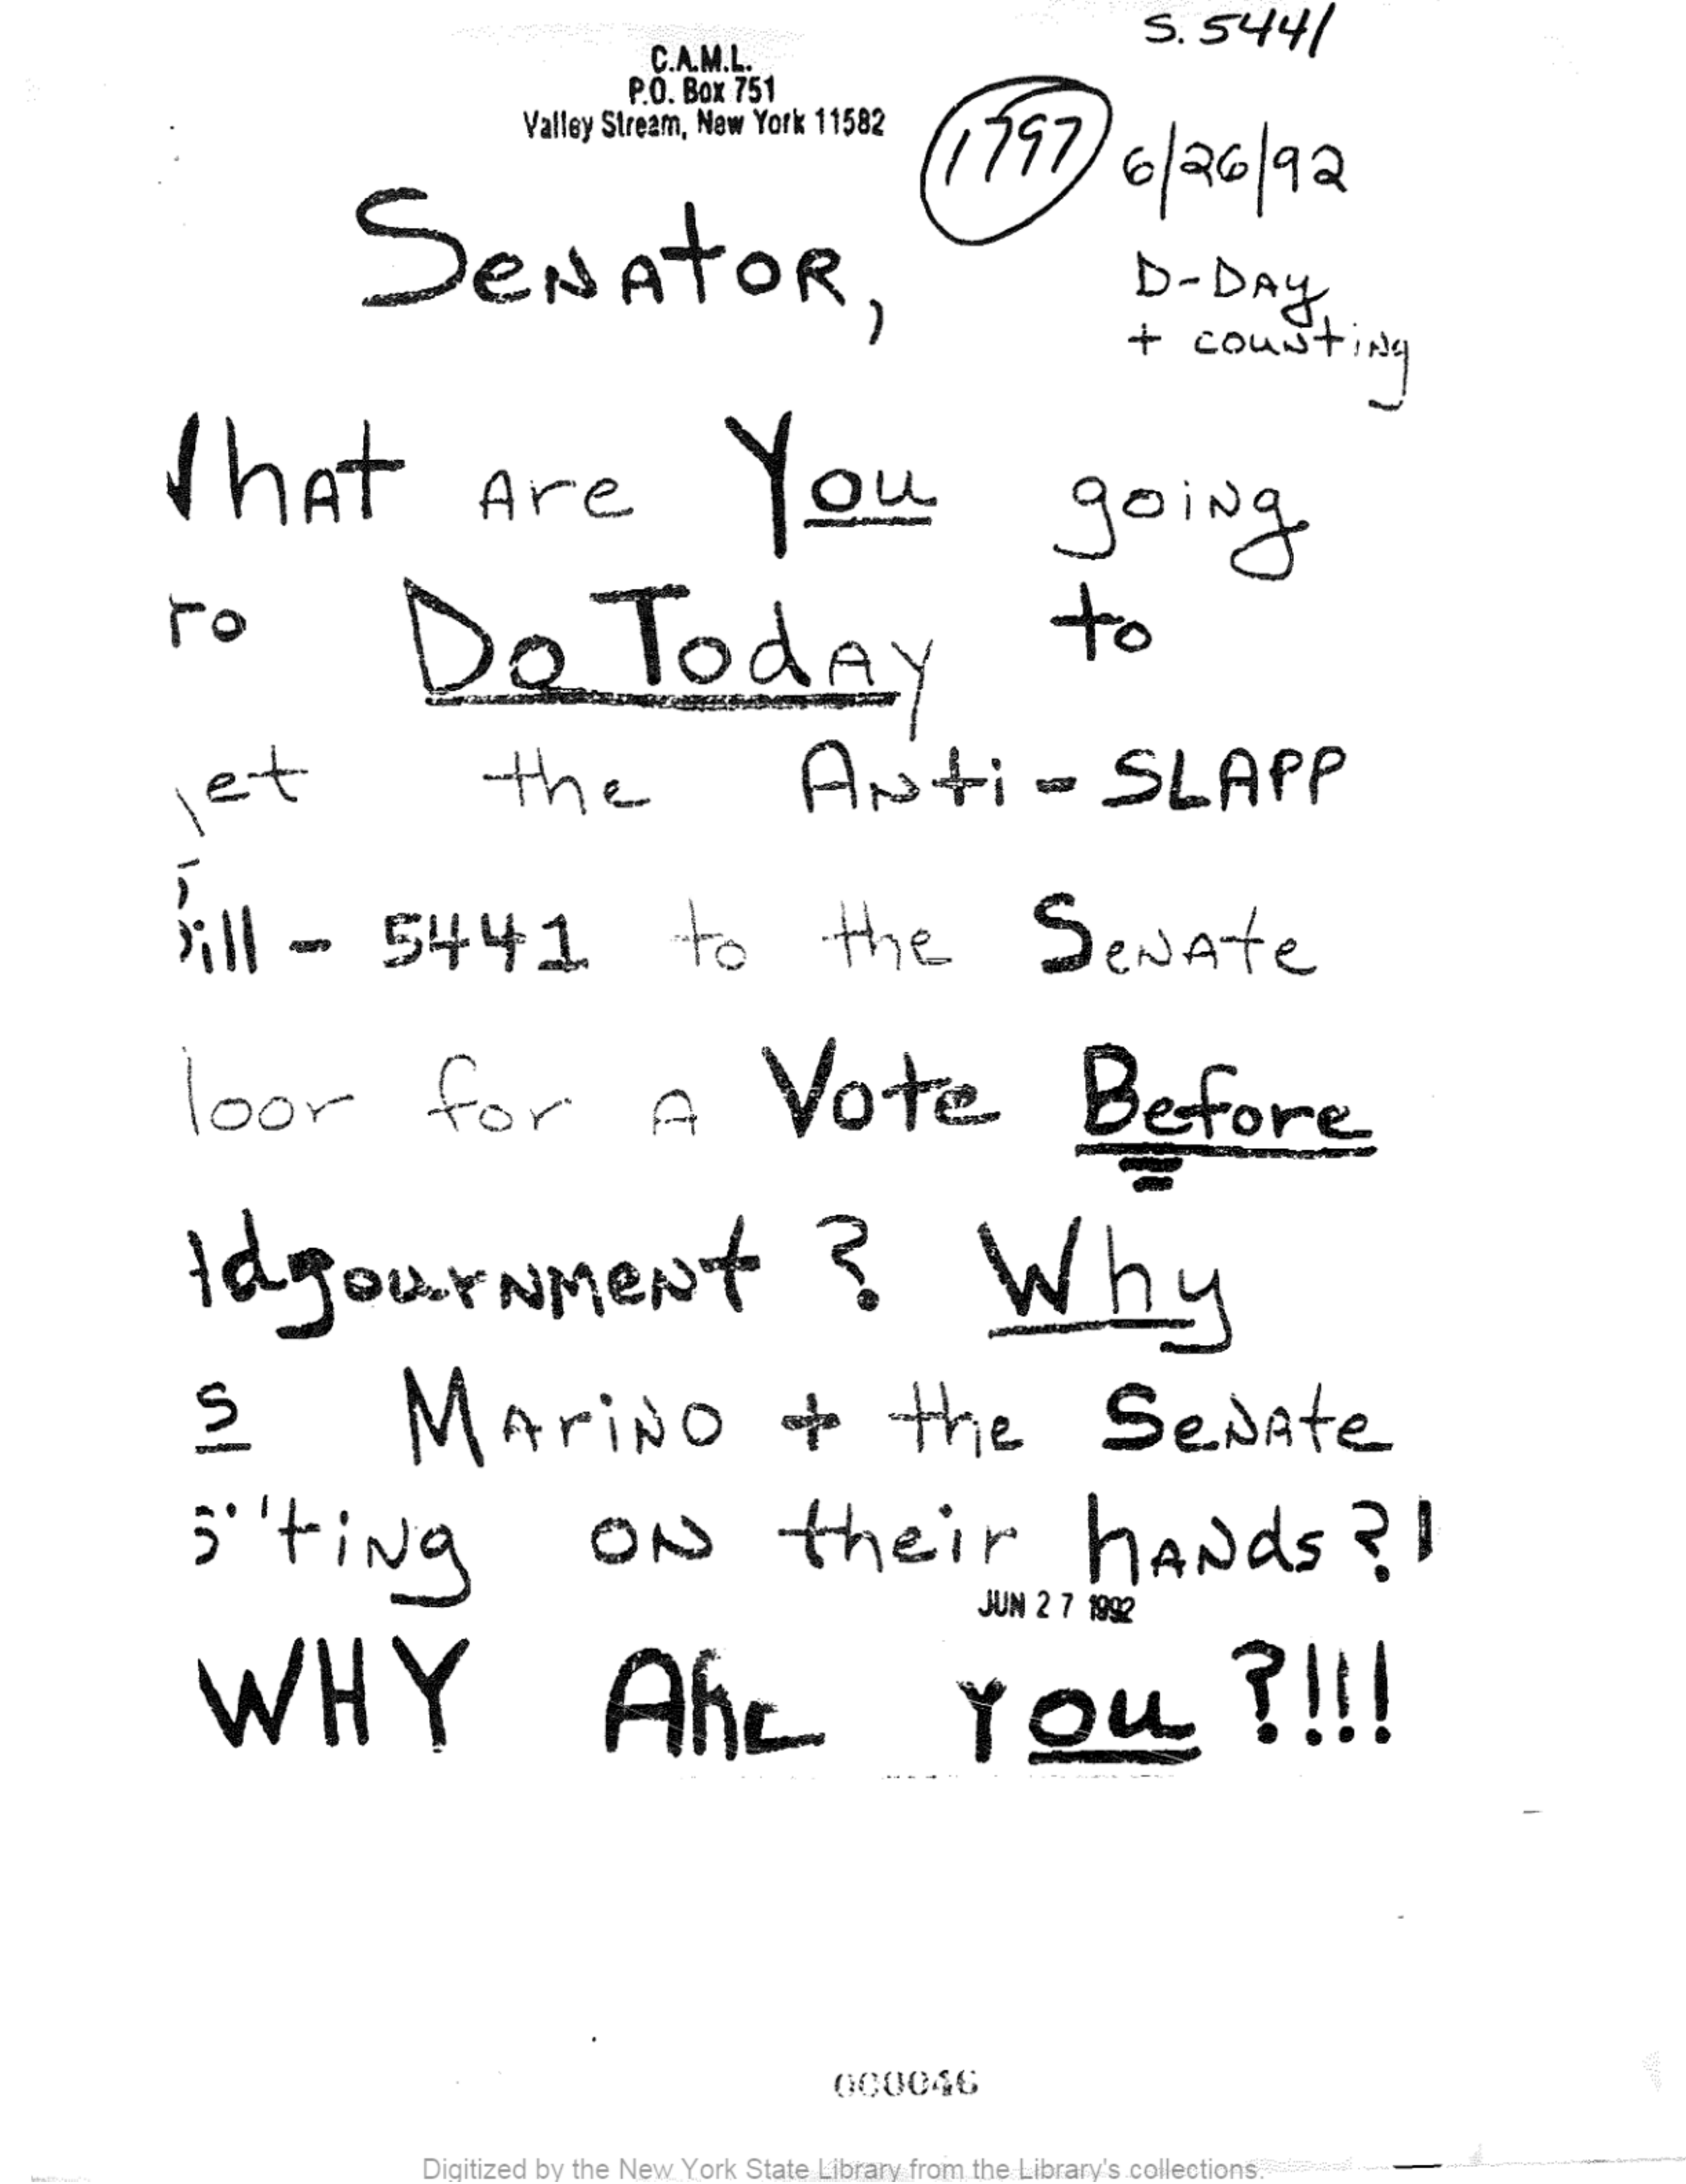 S. 5441
C.A.M.L.
P.O. Box 751
Valley Stream, New York 11582
1797
6/26/92
SENATOR,
D-DAY
+ counting
What are You going
To Do TodAy to
et the Anti - SLAPP
Bill - 5441 to the Senate
loor for A Vote Before
Adgournment? Why
s Marino + the Senate
sitting on their hands?!
JUN 27 1992
WHY ARE YOU?!!!
000046
Digitized by the New York State Library from the Library's collections.